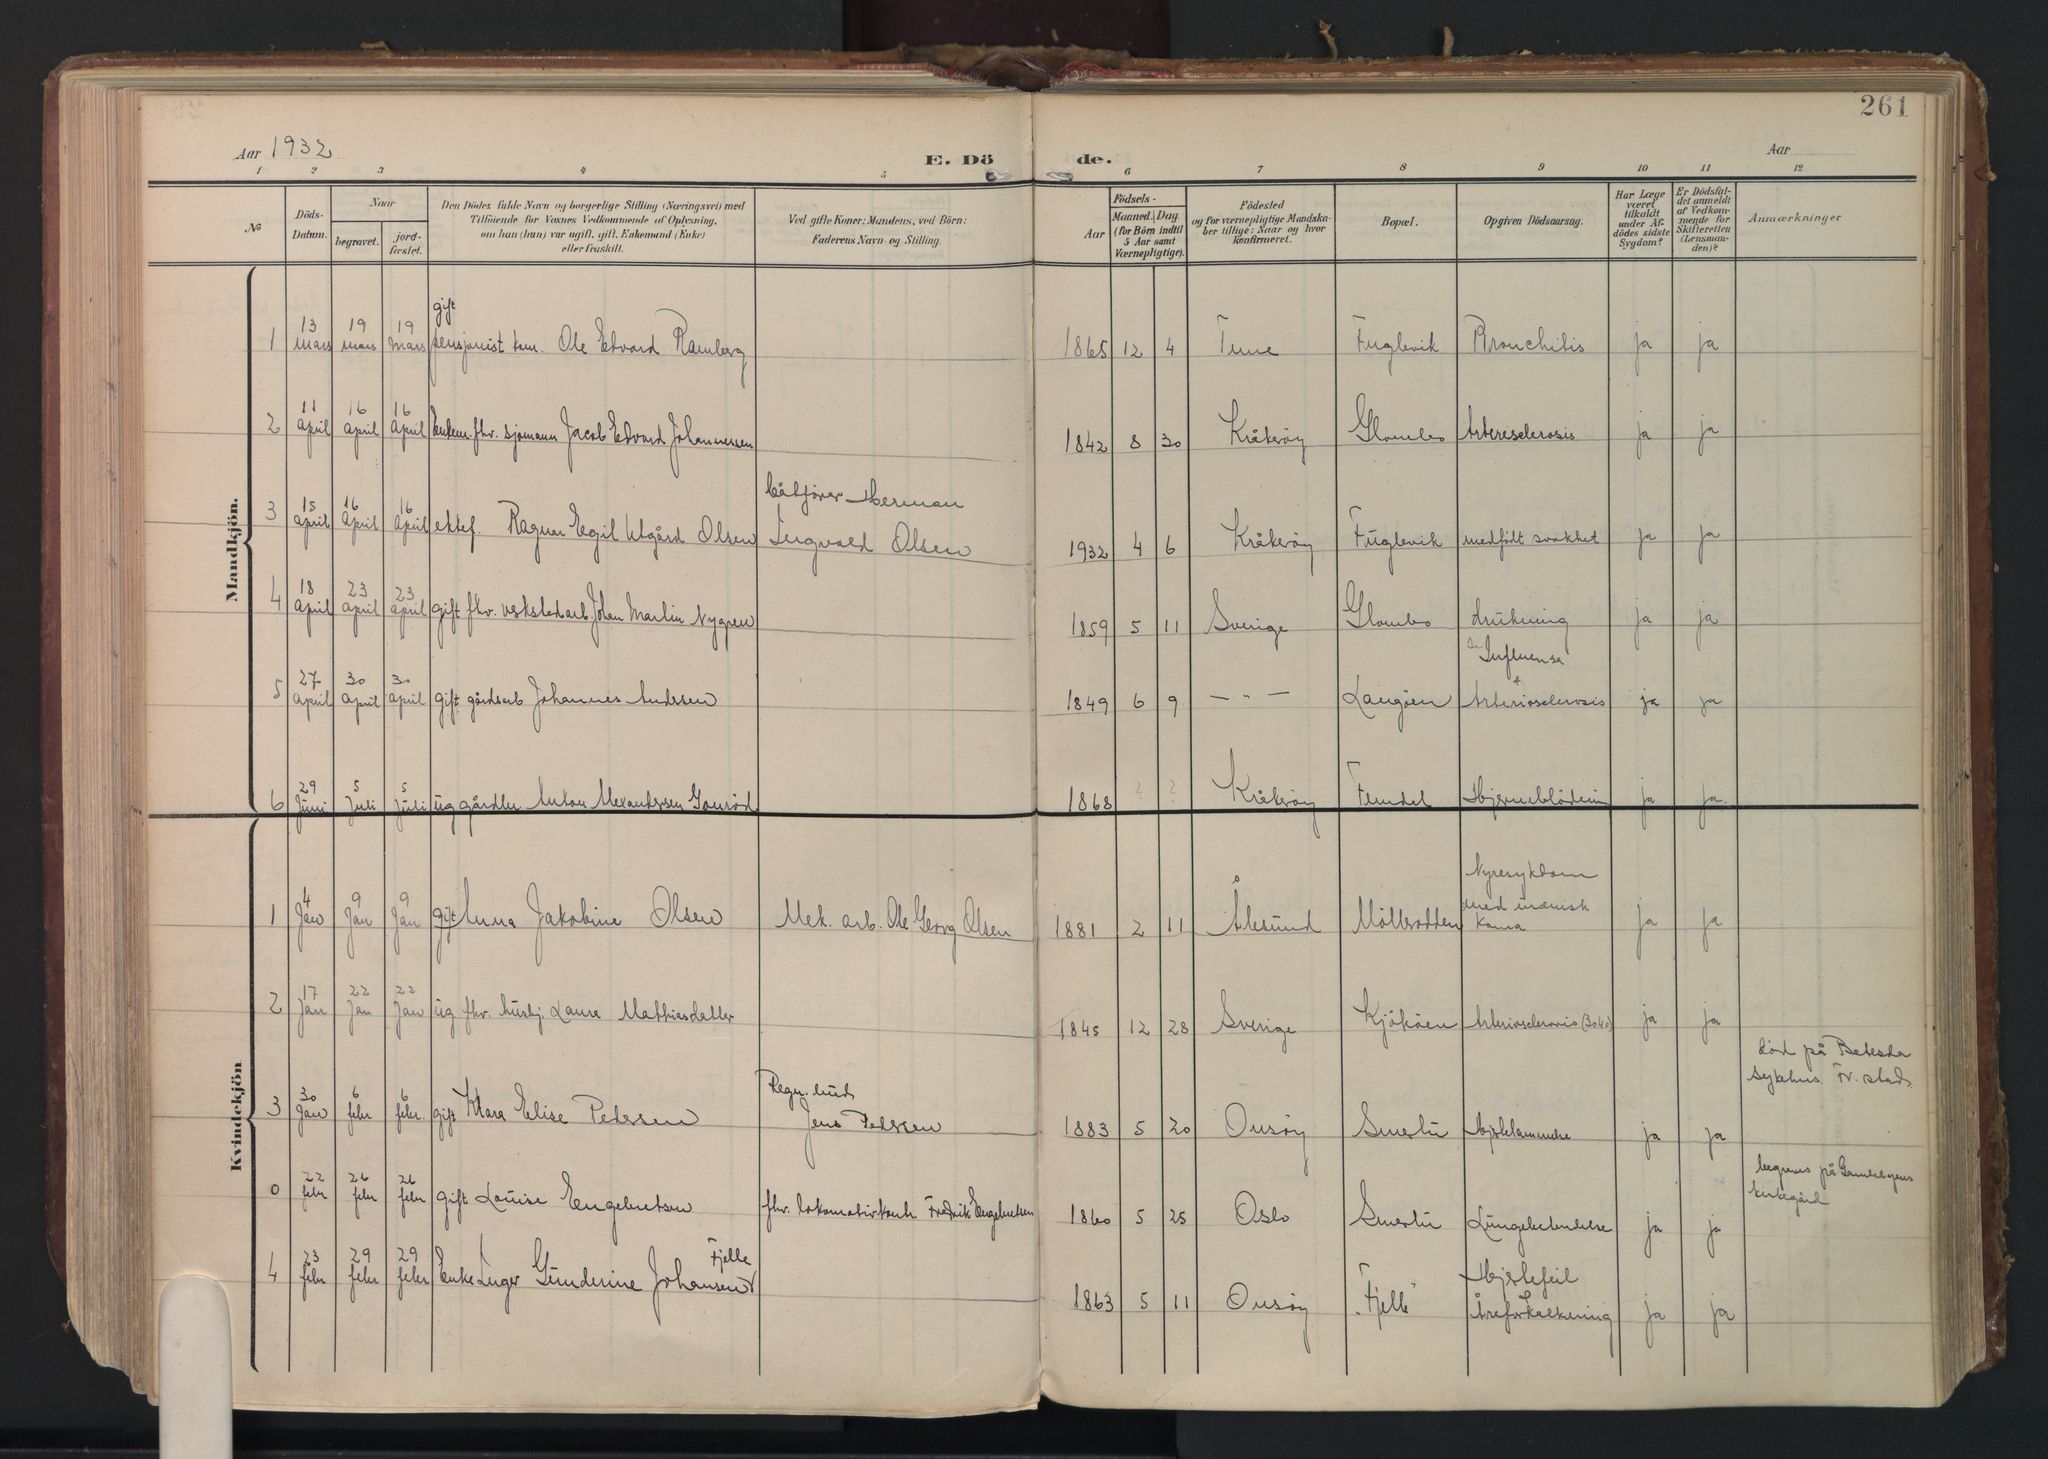 261
Aar 1932
E. Dö de.
Aar
1 2 3 4 5 6 7 8 9 10 11 12
No
Döds-Datum.
Naar
begravet.
jord-fæstet.
Den Dödes fulde Navn og borgerlige Stilling (Næringsvei) med
Tilföiende for Voxnes Vedkommende af Oplysning,
om han (hun) var ugift, gift, Enkemand (Enke)
eller fraskilt.
Ved gifte Koner: Mandens, ved Börn:
Faderens Navn og Stilling.
Födsels-
Aar
Maaned. Dag.
(for Börn indtil
5 Aar samt
Værnepligtige).
Födested
og for værnepligtige Mandska-
ber tillige: Naar og hvor
konfirmeret.
Bopæl.
Opgiven Dödsaarsag.
Har Læge
været
tilkaldt
under Af-
dödes sidste
Sygdom?
Er Dödsfal-
det anmeldt
af Vedkom-
mende for
Skifteretten
(Lensman-
den)?
Anmærkninger
Mandkjön.
gift
1 13 mars 19 mars 19 mars pensjonist Ole Edvard Ramberg 1865 12 4 Tune Fuglevik Bronchitis ja ja
2 11 april 16 april 16 april Enkem. fhv. sjømann Jacob Edvard Johannessen 1842 8 30 Kråkerøy Glombo Arteresclerosis ja ja
båtfører Herman
3 15 april 16 april 16 april ektef. Ragnar Egil Utgård Olsen Ingvald Olsen 1932 4 6 Kråkerøy Fuglevik medfødt svakhet ja ja
4 18 april 23 april 23 april gift fhv. verkstedarb. Johan Martin Nygren 1859 5 11 Sverige Glombo drukning ja ja
Influensa
+
5 27 april 30 april 30 april gift gårdsarb Johannes Andersen 1849 6 9 — " — Langøen Arteriosclerosis ja ja
6 29 Juni 5 Juli 5 Juli ug Anton Alexandersen 1868 ? ? Kråkerøy Hjerneblødning ja ja
Kvindekjön
Nyresykdom
1 4 Jan 9 Jan 9 Jan gift Anna Jakobine Olsen Mek. arb. Ole Georg Olsen 1881 2 11 Ålesund Møllerodden med uræmisk ja ja
koma
2 17 Jan 22 Jan 22 Jan ug fhv. hushj. Laura Mathiasdatter 1845 12 28 Sverige Kjøkøen Arteriosclerosis ja ja
død på Betesda
sykehus Fr. stad
3 30 Jan 6 febr 6 febr. gift Klara Elise Petersen Jens Petersen 1883 5 20 Onsøy Smertu Hjertelammelse ja ja
begraves på Gamlebyens
kirkegård
0 22 febr 26 febr 26 febr gift Louise Engebretsen fhv. lokomotivkond. Fredrik Engebretsen 1860 5 25 Oslo Smertu Lungebetendelse ja ja
Fjelle
Hjertefeil
4 23 febr 29 febr 29 febr Enke Inger Gunderine Johansen 1863 5 11 Onsøy "Fjelle" Åreforkalkning ja ja